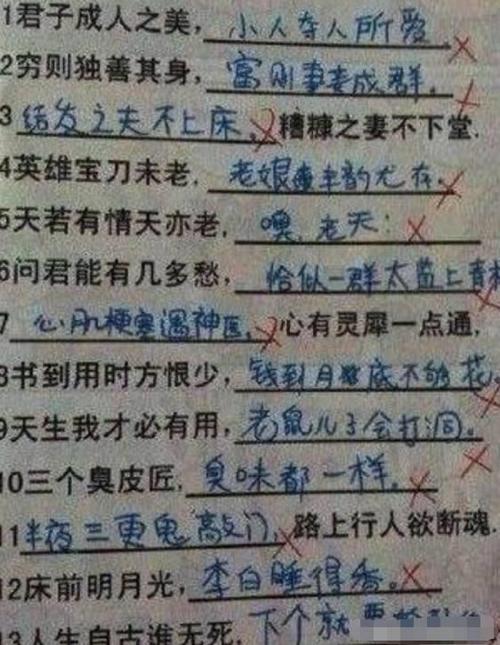 1君子成人之美，小人夺人所爱
2穷则独善其身，富则妻妾成群。
3结发之夫不上床，糟糠之妻不下堂.
4英雄宝刀未老，老娘丰韵尤存。
5天若有情天亦老，噢，老天！
6问君能有几多愁，恰似一群太监上青
7心肌梗塞遇神医，心有灵犀一点通，
8书到用时方恨少，钱到月底不够花
9天生我才必有用，老鼠儿子会打洞。
10三个臭皮匠，臭味都一样。
11半夜三更鬼敲门，路上行人欲断魂.
12床前明月光，李白睡得香。
13人生自古谁无死，下个就